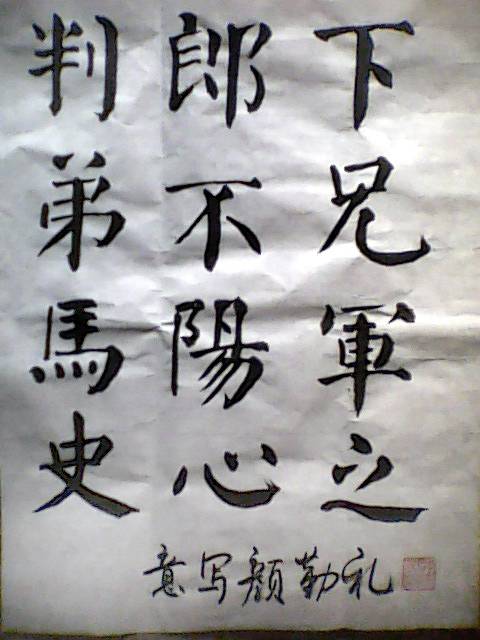 下兄軍之
郎不陽心
判弟馬史
意写颜勤礼